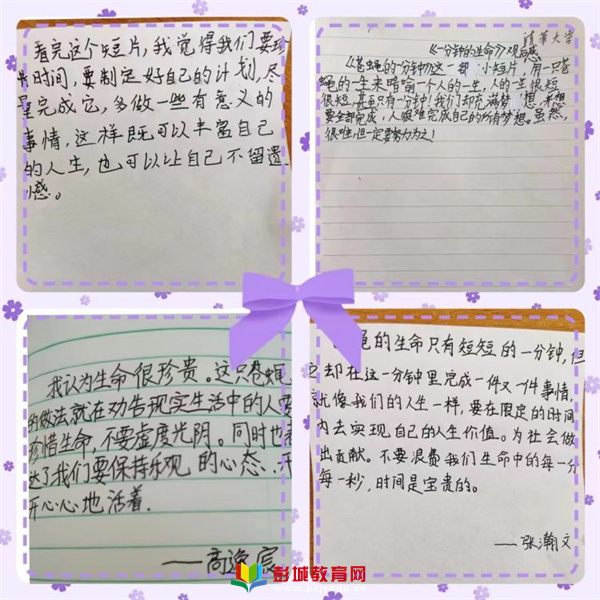 看完这个短片,我觉得我们要珍
惜时间,要制定好自己的计划,尽
量完成它,多做一些有意义的
事情,这样既可以丰富自己
的人生,也可以让自己不留遗
憾。
清华大学
《一分钟的生命》观后感
《苍蝇的一分钟》这一部 小短片,用一只苍
蝇的一生来暗喻一个人的一生,人的一生很短
很短,甚至只有一分钟!我们却在满梦 想,若想
要全部完成,人很难完成自己的所有梦想。虽然,
很难,但一定要努力为之!
我认为生命很珍贵。这只苍蝇
的做法,就在劝告现实生活中的人要
珍惜生命,不要虚度光阴。同时也表
达了我们要保持乐观 的心态,开
开心心地活着.
——高逸宸
蝇的生命只有短短的一分钟,但
它却在这一分钟里完成一件又一件事情,
就像我们的人生一样,要在限定的时间
内去实现自己的人生价值。为社会做
出贡献。不要浪费我们生命中的每一分
每一秒,时间是宝贵的。
——张瀚文
彭城教育网